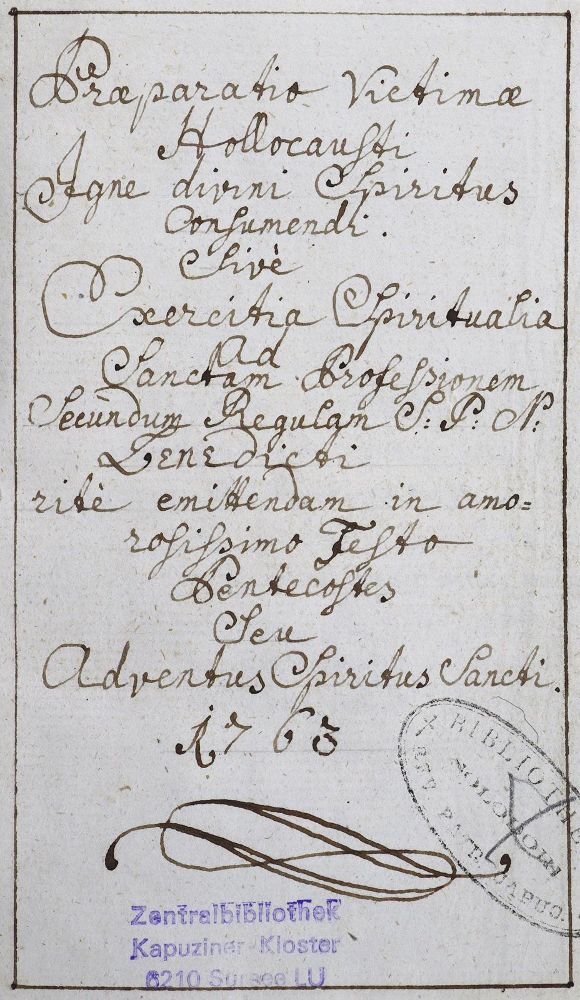 Præparatio Victimæ
Hollocausti
Igne divini Spiritus
Consumendi.
Sivè
Exercitia Spiritualia
Ad
Sanctam Professionem
Secundum Regulam S: P: N:
Benedicti
ritè emittendam in amo=
rosissimo Festo
Pentecostes
Seu
Adventus Spiritus Sancti.
1763
BIBLIOTHE
SOLODORI
PATR. CAPUC.
Zentralbibliothek
Kapuziner-Kloster
6210 Sursee LU